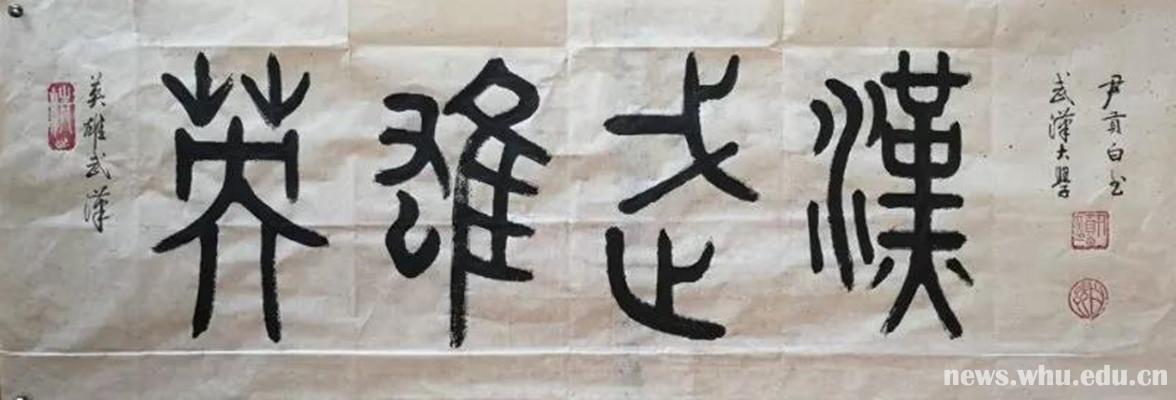 英雄武漢
英雄武漢
武漢大學
尹貢白书
news.whu.edu.cn